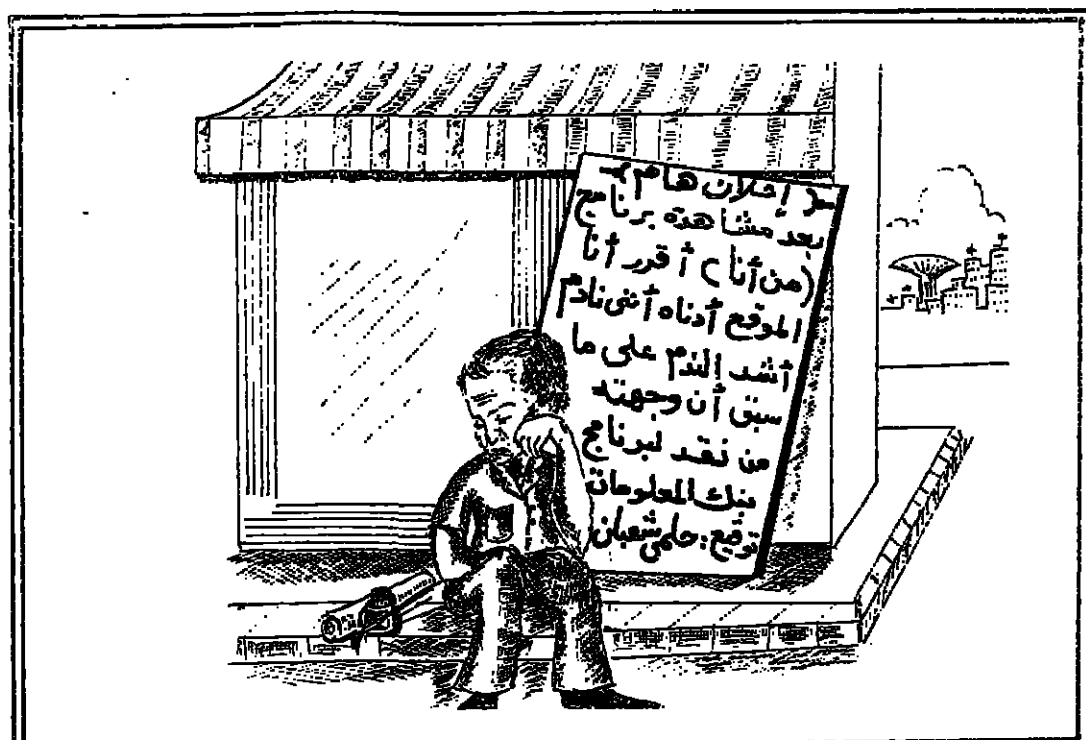 إعلان هام
بعد مشاهدة برنامج
(من أنا) أقرر أنا
الموقع أدناه أننى نادم
أشد الندم على ما
سبق أن وجهته
من نقد لبرنامج
بنك المعلومات
توقيع: حلمي شعبان